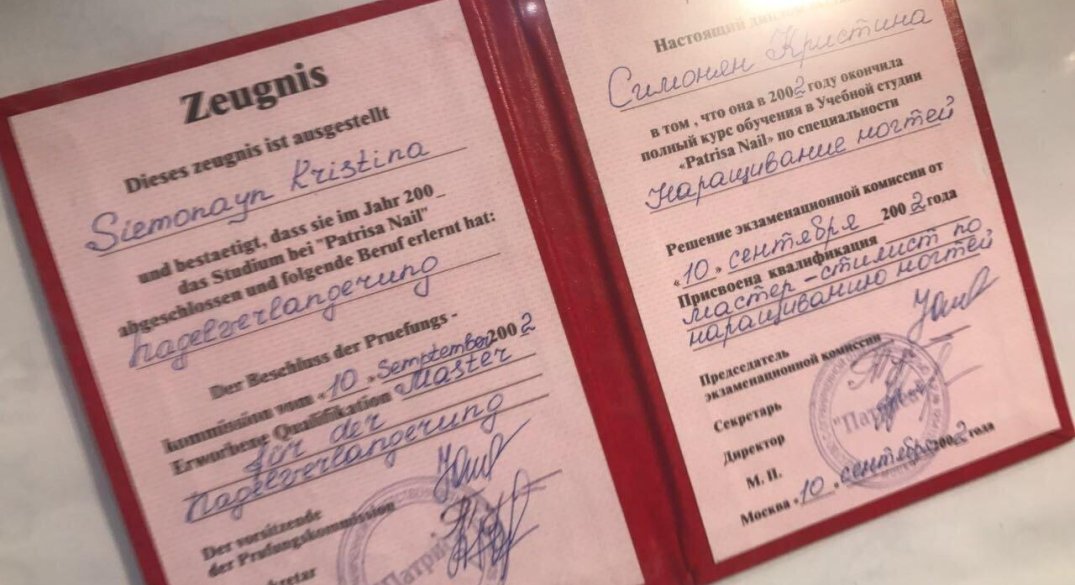 Zeugnis
Dieses zeugnis ist ausgestellt
Siemonayn Kristina
und bestaetigt, dass sie im Jahr 200_
das Studium bei "Patrisa Nail"
abgeschlossen und folgende Beruf erlernt hat:
nagelverlangerung
Der Beschluss der Pruefungs -
kommission vom «10 » Semptember 2002
Erworbene Qualifikation Master
für der
nagelverlangerung
Der vorsitzende
der Prufungskommission
Настоящий
Симонян Кристина
в том , что она в 2002 году окончила
полный курс обучения в Учебной студии
«Patrisa Nail» по специальности
Наращивание ногтей
Решение экзаменационной комиссии от
«10 » сентября 2002 года
Присвоена квалификация
мастер-стилист по
наращиванию ногтей
Председатель
экзаменационной комиссии
Секретарь
Директор
М. П.
Москва «10 » сентября 2002 года